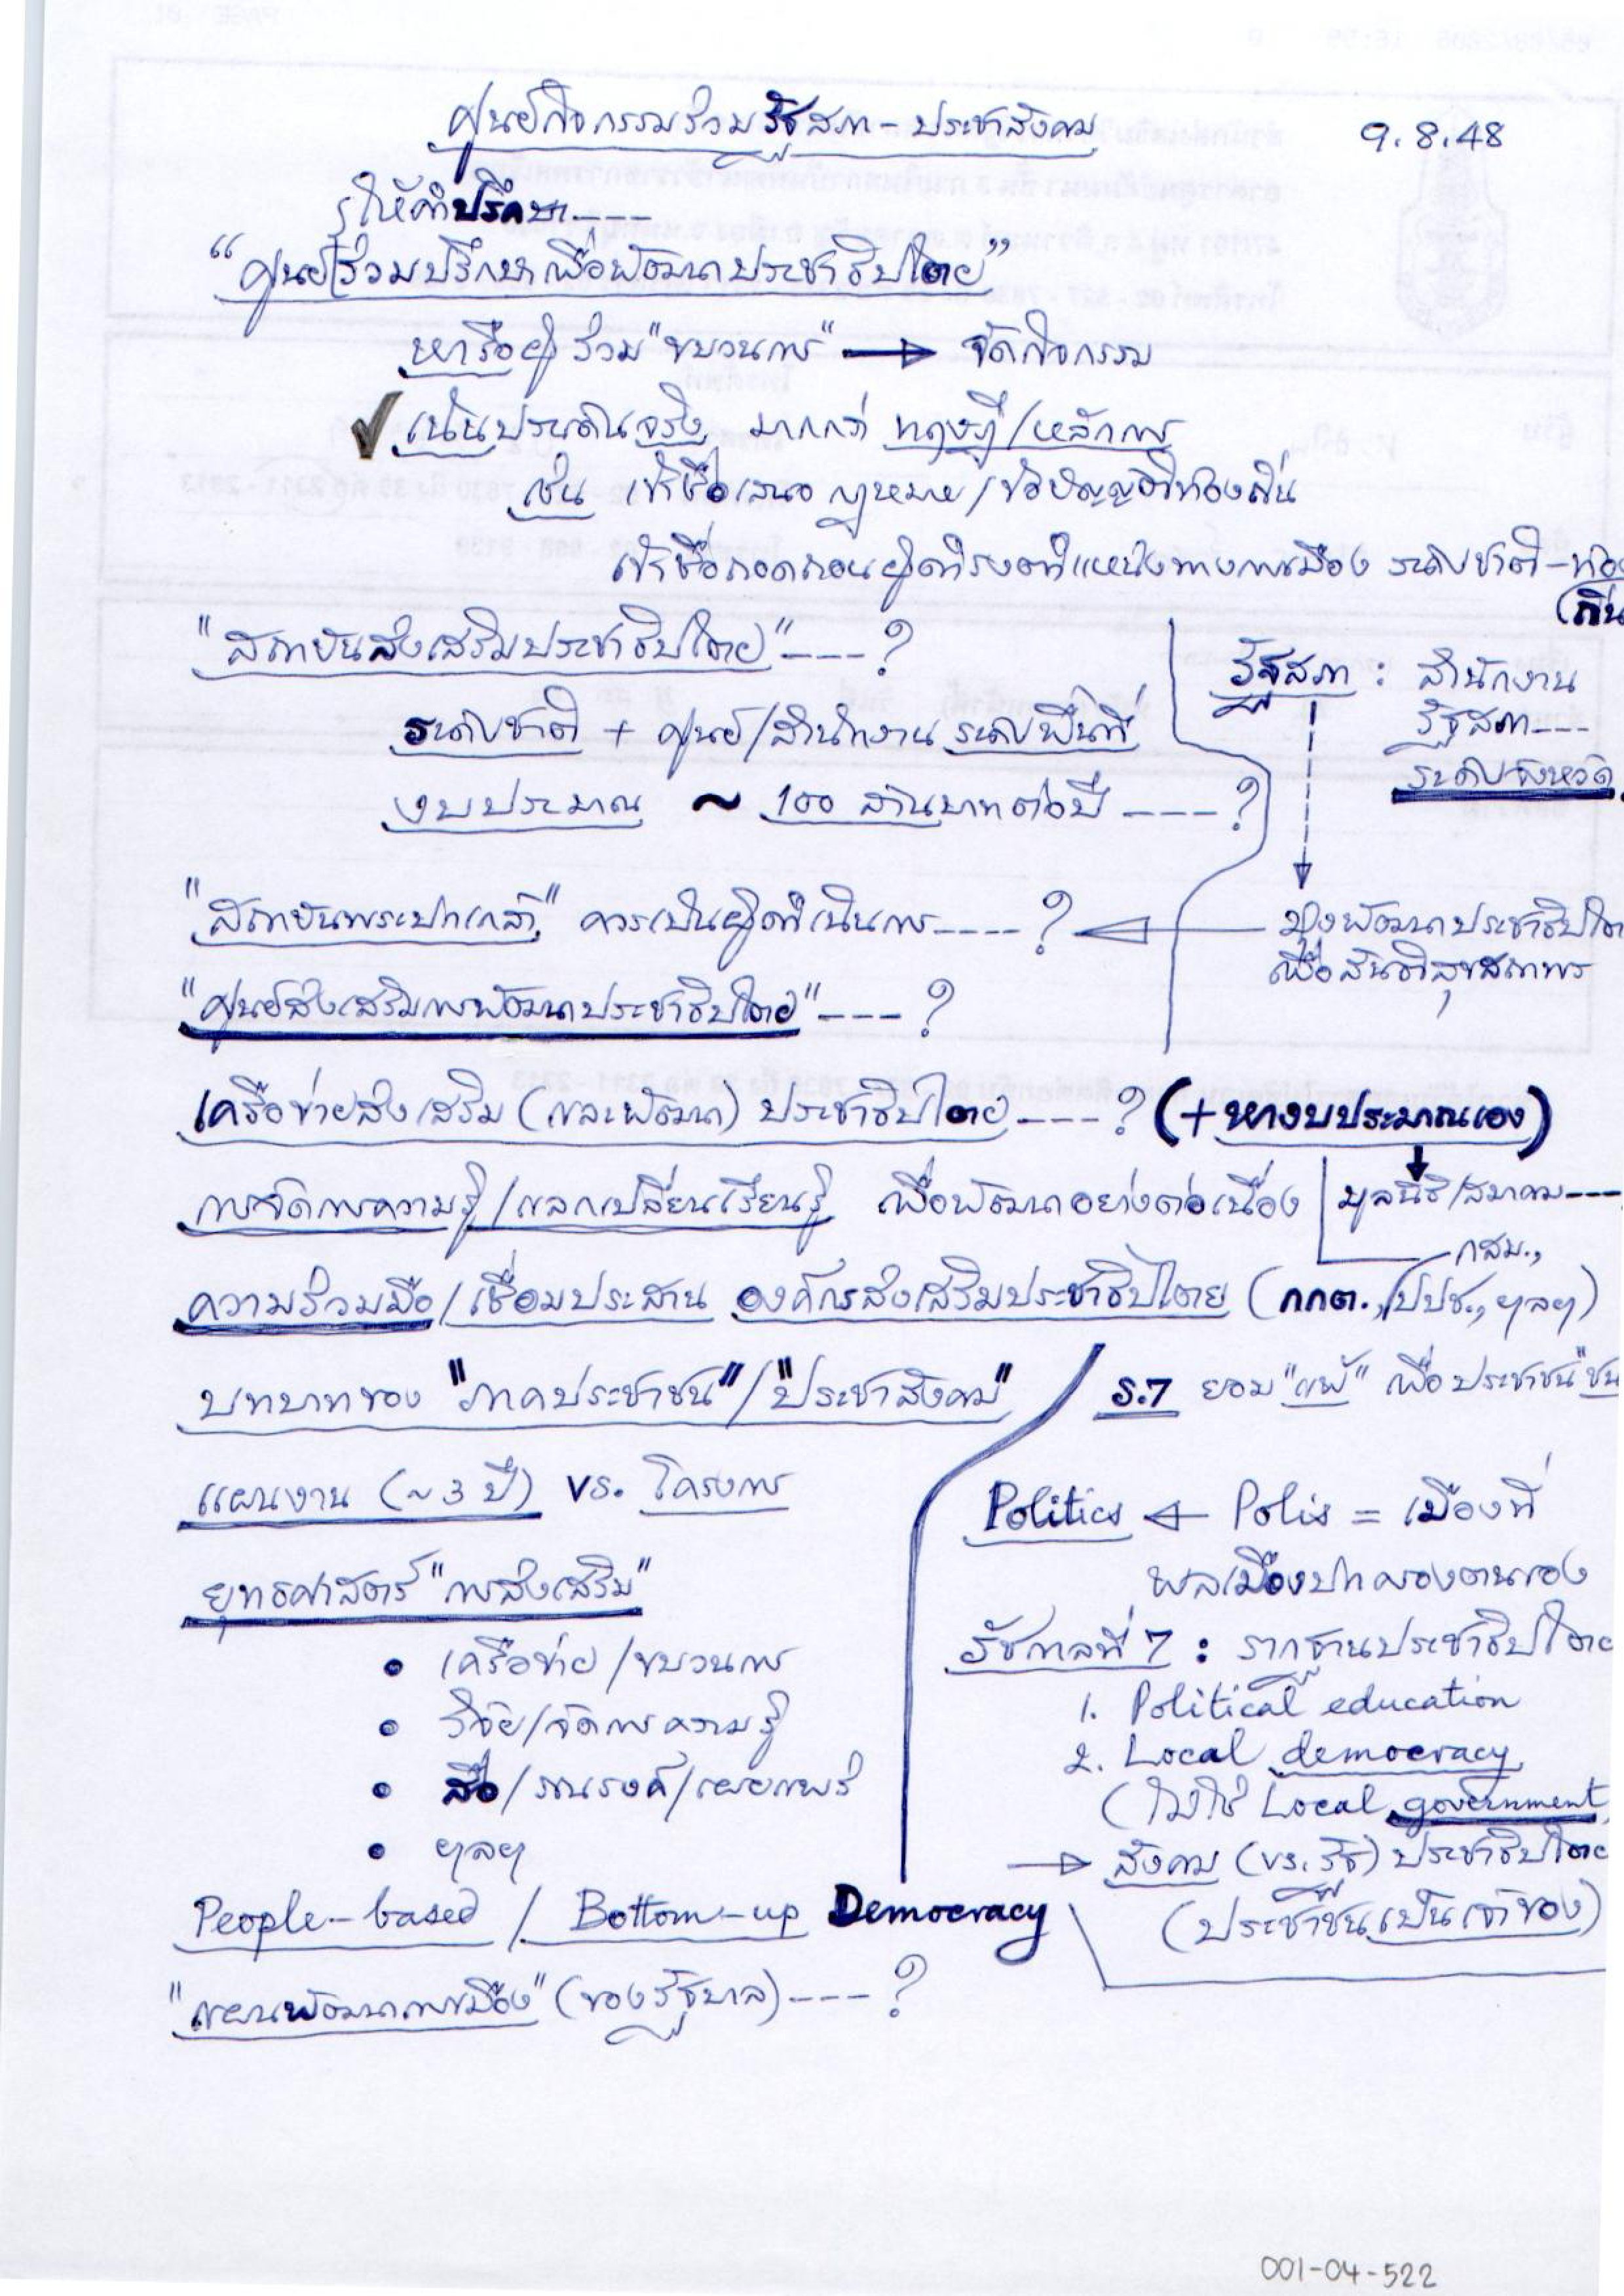 ศูนย์กิจกรรมร่วมรัฐสภา - ประชาสังคม
9.8.48
ให้คำปรึกษา----
"ศูนย์ร่วมปรึกษาเพื่อพัฒนาประชาธิปไตย"
หารือผู้ร่วม "ขบวนการ" → จัดกิจกรรม
✓ เน้นประเด็นจริง มากกว่า ทฤษฎี/หลักการ
เช่น เข้าชื่อเสนอกฎหมาย/ข้อบัญญัติท้องถิ่น
เข้าชื่อถอดถอนผู้ดำรงตำแหน่งทางการเมือง ระดับชาติ-ท้อง
(ถิ่น
"สถาบันส่งเสริมประชาธิปไตย" ----?
ระดับชาติ + ศูนย์/สำนักงาน ระดับพื้นที่
งบประมาณ ~ 100 ล้านบาทต่อปี ----?
รัฐสภา : สำนักงาน
รัฐสภา---
ระดับจังหวัด
"สถาบันพระปกเกล้า" ควรเป็นผู้ดำเนินการ----? ←
มุ่งพัฒนาประชาธิปไต
เพื่อสันติสุขสถาพร
"ศูนย์ส่งเสริมการพัฒนาประชาธิปไตย" ----?
เครือข่ายส่งเสริม (และพัฒนา) ประชาธิปไตย ----? (+ หางบประมาณเอง)
การจัดการความรู้/แลกเปลี่ยนเรียนรู้ เพื่อพัฒนาอย่างต่อเนื่อง
มูลนิธิ/สมาคม---
กสม.,
ความร่วมมือ/เชื่อมประสาน องค์กรส่งเสริมประชาธิปไตย (กกต., ปปช., ฯลฯ)
บทบาทของ "ภาคประชาชน"/"ประชาสังคม"
ร.7 ยอม "แพ้" เพื่อประชาชน "ชน
แผนงาน (~3 ปี) vs. โครงการ
ยุทธศาสตร์ "การส่งเสริม"
• เครือข่าย/ขบวนการ
• วิจัย/จัดการความรู้
• สื่อ/รณรงค์/เผยแพร่
• ฯลฯ
Politics ← Polis = เมืองที่
พลเมืองปกครองตนเอง
รัชกาลที่ 7 : รากฐานประชาธิปไตย
1. Political education
2. Local democracy
(ไม่ใช่ Local government
→ สังคม (vs. รัฐ) ประชาธิปไตย
(ประชาชนเป็นเจ้าของ)
People-based / Bottom-up Democracy
"แผนพัฒนาการเมือง" (ของรัฐบาล) ----?
001-04-522